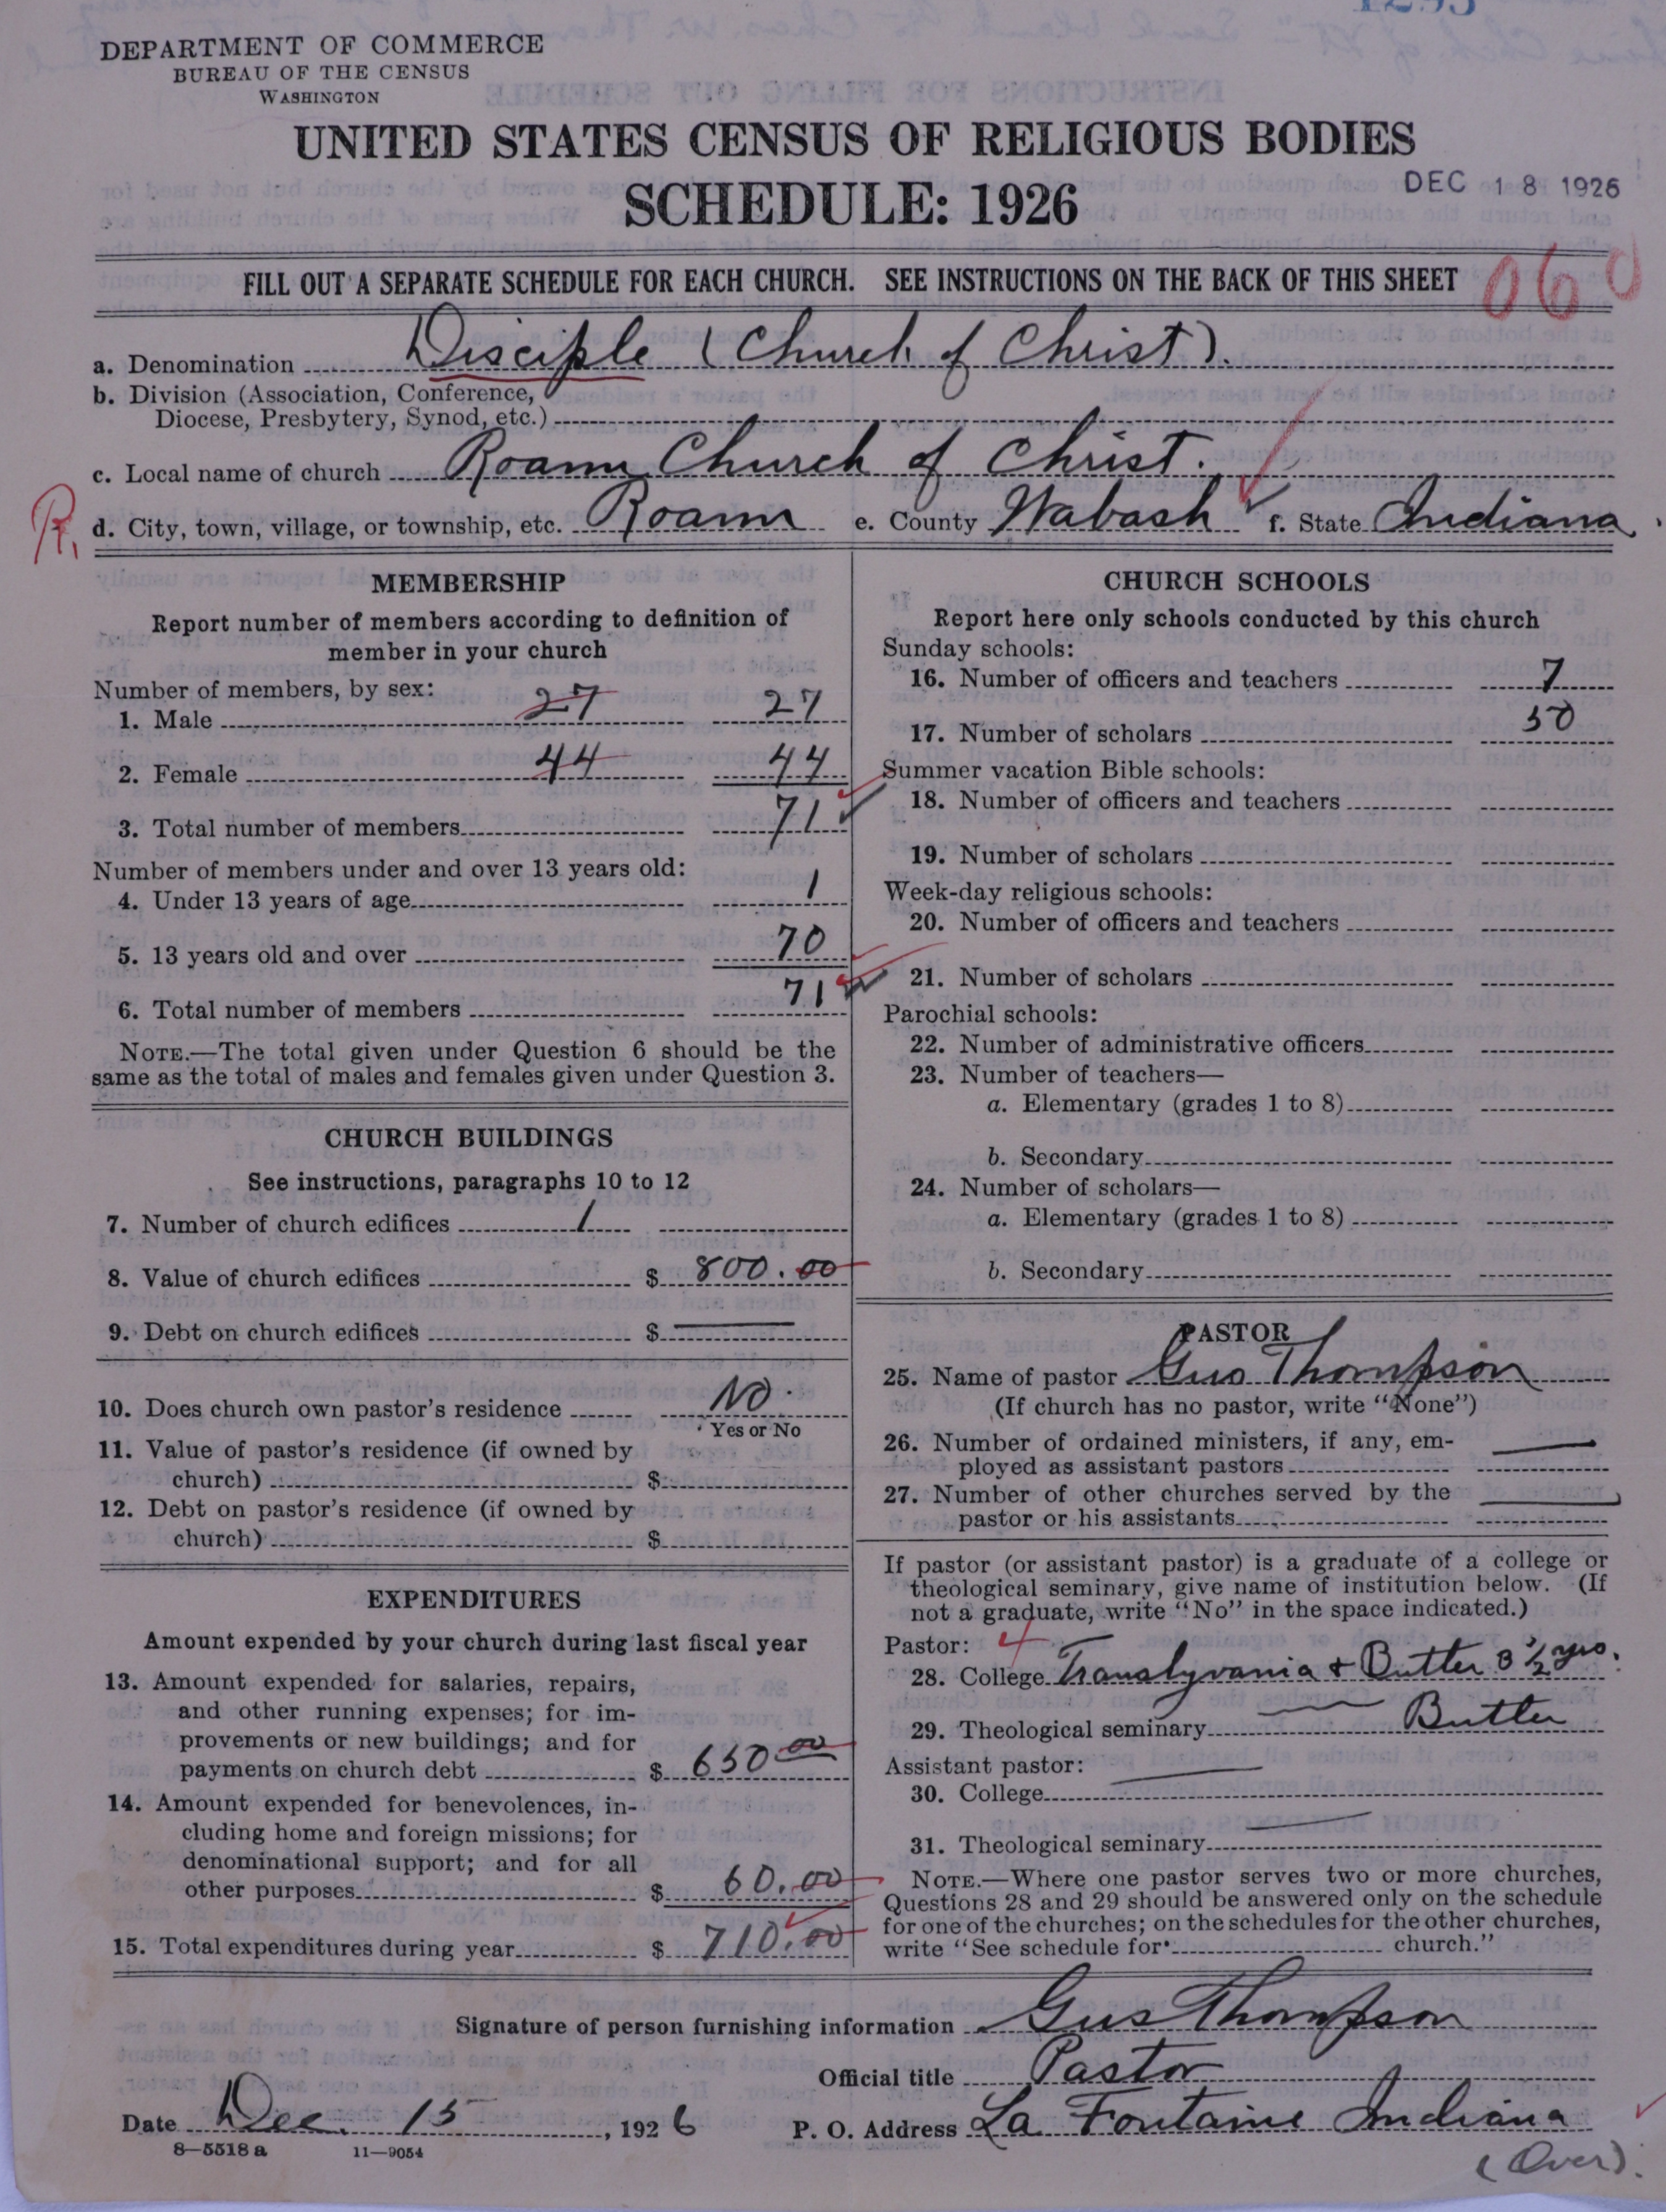 DEPARTMENT OF COMMERCE
BUREAU OF THE CENSUS
WASHINGTON
UNITED STATES CENSUS OF RELIGIOUS BODIES
SCHEDULE: 1926
DEC 18 1926
FILL OUT A SEPARATE SCHEDULE FOR EACH CHURCH. SEE INSTRUCTIONS ON THE BACK OF THIS SHEET
060
a. Denomination Disciple (Church of Christ).
b. Division (Association, Conference,
Diocese, Presbytery, Synod, etc.)
c. Local name of church Roann Church of Christ.
R, d. City, town, village, or township, etc. Roann e. County Wabash f. State Indiana.
MEMBERSHIP
Report number of members according to definition of
member in your church
Number of members, by sex:
1. Male 27 27
2. Female 44 44
3. Total number of members 71
Number of members under and over 13 years old:
4. Under 13 years of age 1
5. 13 years old and over 70
6. Total number of members 71
NOTE.—The total given under Question 6 should be the
same as the total of males and females given under Question 3.
CHURCH BUILDINGS
See instructions, paragraphs 10 to 12
7. Number of church edifices 1
8. Value of church edifices $ 800.00
9. Debt on church edifices $
10. Does church own pastor's residence No.
Yes or No
11. Value of pastor's residence (if owned by
church) $
12. Debt on pastor's residence (if owned by
church) $
EXPENDITURES
Amount expended by your church during last fiscal year
13. Amount expended for salaries, repairs,
and other running expenses; for im-
provements or new buildings; and for
payments on church debt $ 650 00
14. Amount expended for benevolences, in-
cluding home and foreign missions; for
denominational support; and for all
other purposes $ 60.00
15. Total expenditures during year $ 710.00
CHURCH SCHOOLS
Report here only schools conducted by this church
Sunday schools:
16. Number of officers and teachers 7
17. Number of scholars 50
Summer vacation Bible schools:
18. Number of officers and teachers
19. Number of scholars
Week-day religious schools:
20. Number of officers and teachers
21. Number of scholars
Parochial schools:
22. Number of administrative officers
23. Number of teachers—
a. Elementary (grades 1 to 8)
b. Secondary
24. Number of scholars—
a. Elementary (grades 1 to 8)
b. Secondary
PASTOR
25. Name of pastor Gus Thompson
(If church has no pastor, write "None")
26. Number of ordained ministers, if any, em-
ployed as assistant pastors
27. Number of other churches served by the
pastor or his assistants
If pastor (or assistant pastor) is a graduate of a college or
theological seminary, give name of institution below. (If
not a graduate, write "No" in the space indicated.)
Pastor: 4
28. College Translyvania + Butler 3 1/2 yrs.
29. Theological seminary Butler
Assistant pastor:
30. College
31. Theological seminary
NOTE.—Where one pastor serves two or more churches,
Questions 28 and 29 should be answered only on the schedule
for one of the churches; on the schedules for the other churches,
write "See schedule for church."
Signature of person furnishing information Gus Thompson
Official title Pastor
Date Dec. 15, 1926 P. O. Address La Fontaine Indiana
8—5518 a 11—9054
(Over).